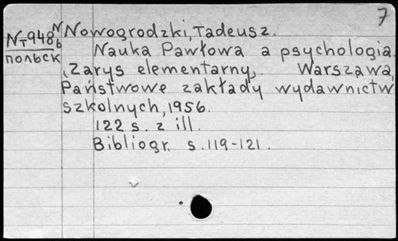 7
N Nowogrodzki, Tadeusz.
NT948 b
польск
Nauka Pawłowa a psychologia.
(Zarys elementarny). Warszawa,
Państwowe zakłady wydawnictw
szkolnych, 1956.
122 s. z ill.
Bibliogr. s. 119-121.